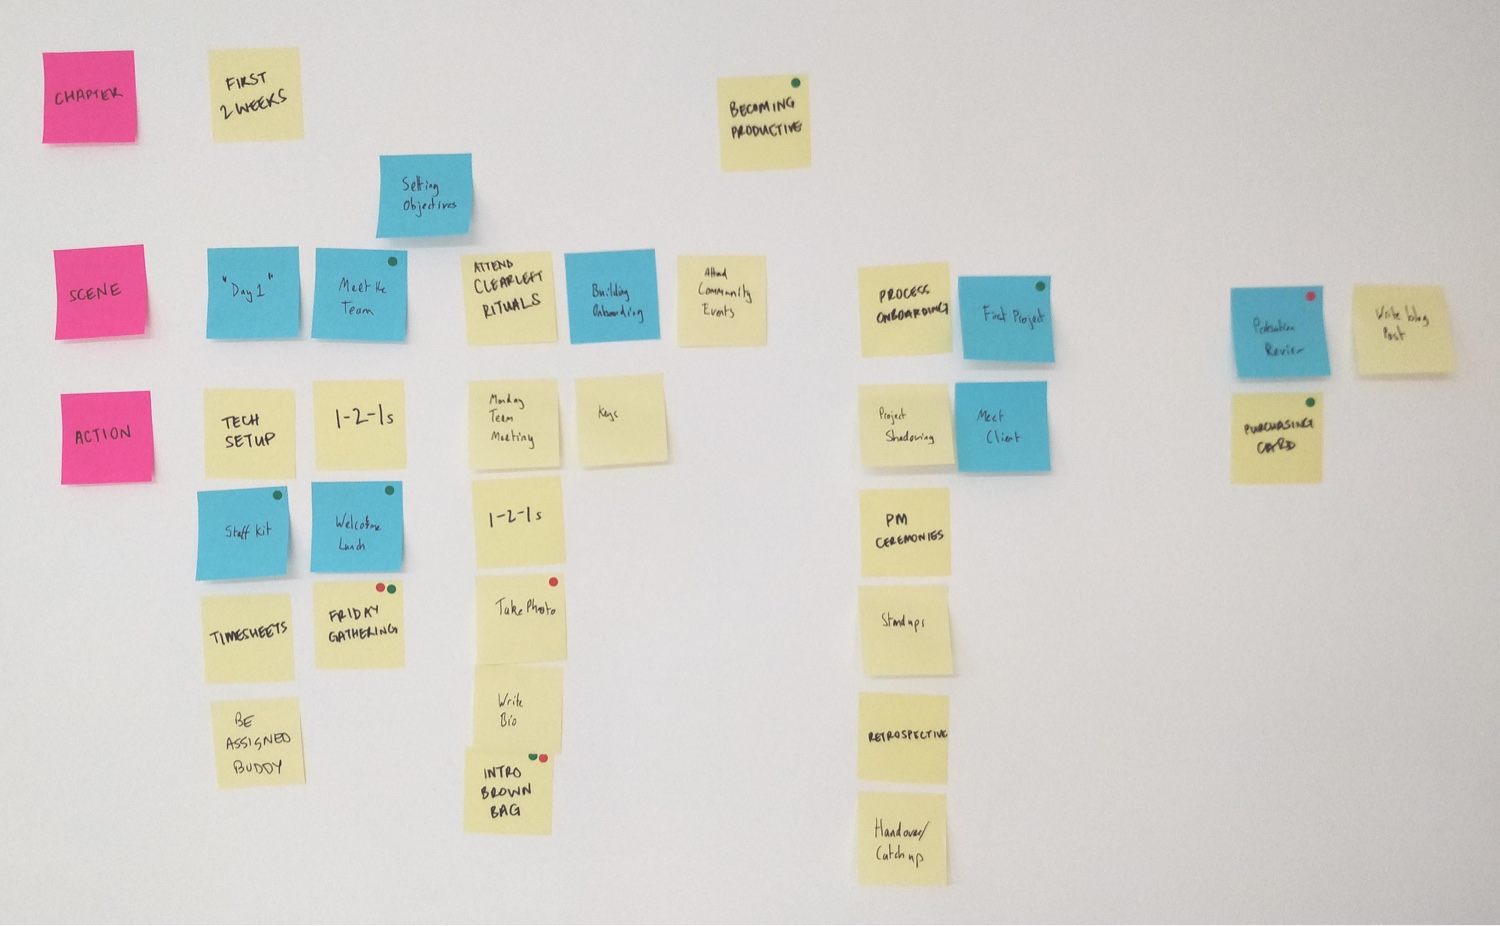 CHAPTER
FIRST
2 WEEKS
BECOMING
PRODUCTIVE
Setting
Objectives
SCENE
"Day 1"
Meet the
Team
ATTEND
CLEARLEFT
RITUALS
Building
Onboarding
Attend
Community
Events
PROCESS
ONBOARDING
First Project
Probation
Review
Write blog
Post
ACTION
TECH
SETUP
1-2-1s
Monday
Team
Meeting
Keys
Project
Shadowing
Meet
Client
PURCHASING
CARD
Staff Kit
Welcome
Lunch
1-2-1s
PM
CEREMONIES
TIMESHEETS
FRIDAY
GATHERING
Take Photo
Standups
BE
ASSIGNED
BUDDY
Write
Bio
RETROSPECTIVE
INTRO
BROWN
BAG
Handover/
Catch up